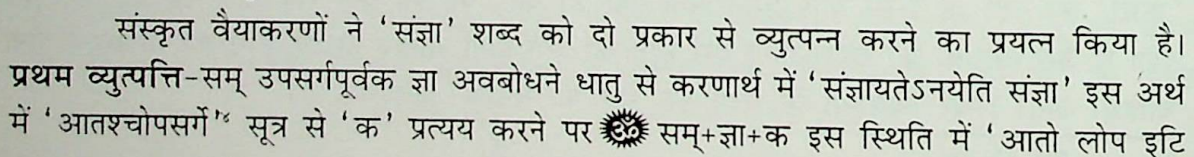 संस्कृत वैयाकरणों ने ‘संज्ञा’ शब्द को दो प्रकार से व्युत्पन्न करने का प्रयत्न किया है।
प्रथम व्युत्पत्ति-सम् उपसर्गपूर्वक ज्ञा अवबोधने धातु से करणार्थ में ‘संज्ञायतेऽनयेति संज्ञा’ इस अर्थ
में ‘आतश्चोपसर्गे’४ सूत्र से ‘क’ प्रत्यय करने पर ॐ सम्+ज्ञा+क इस स्थिति में ‘आतो लोप इटि